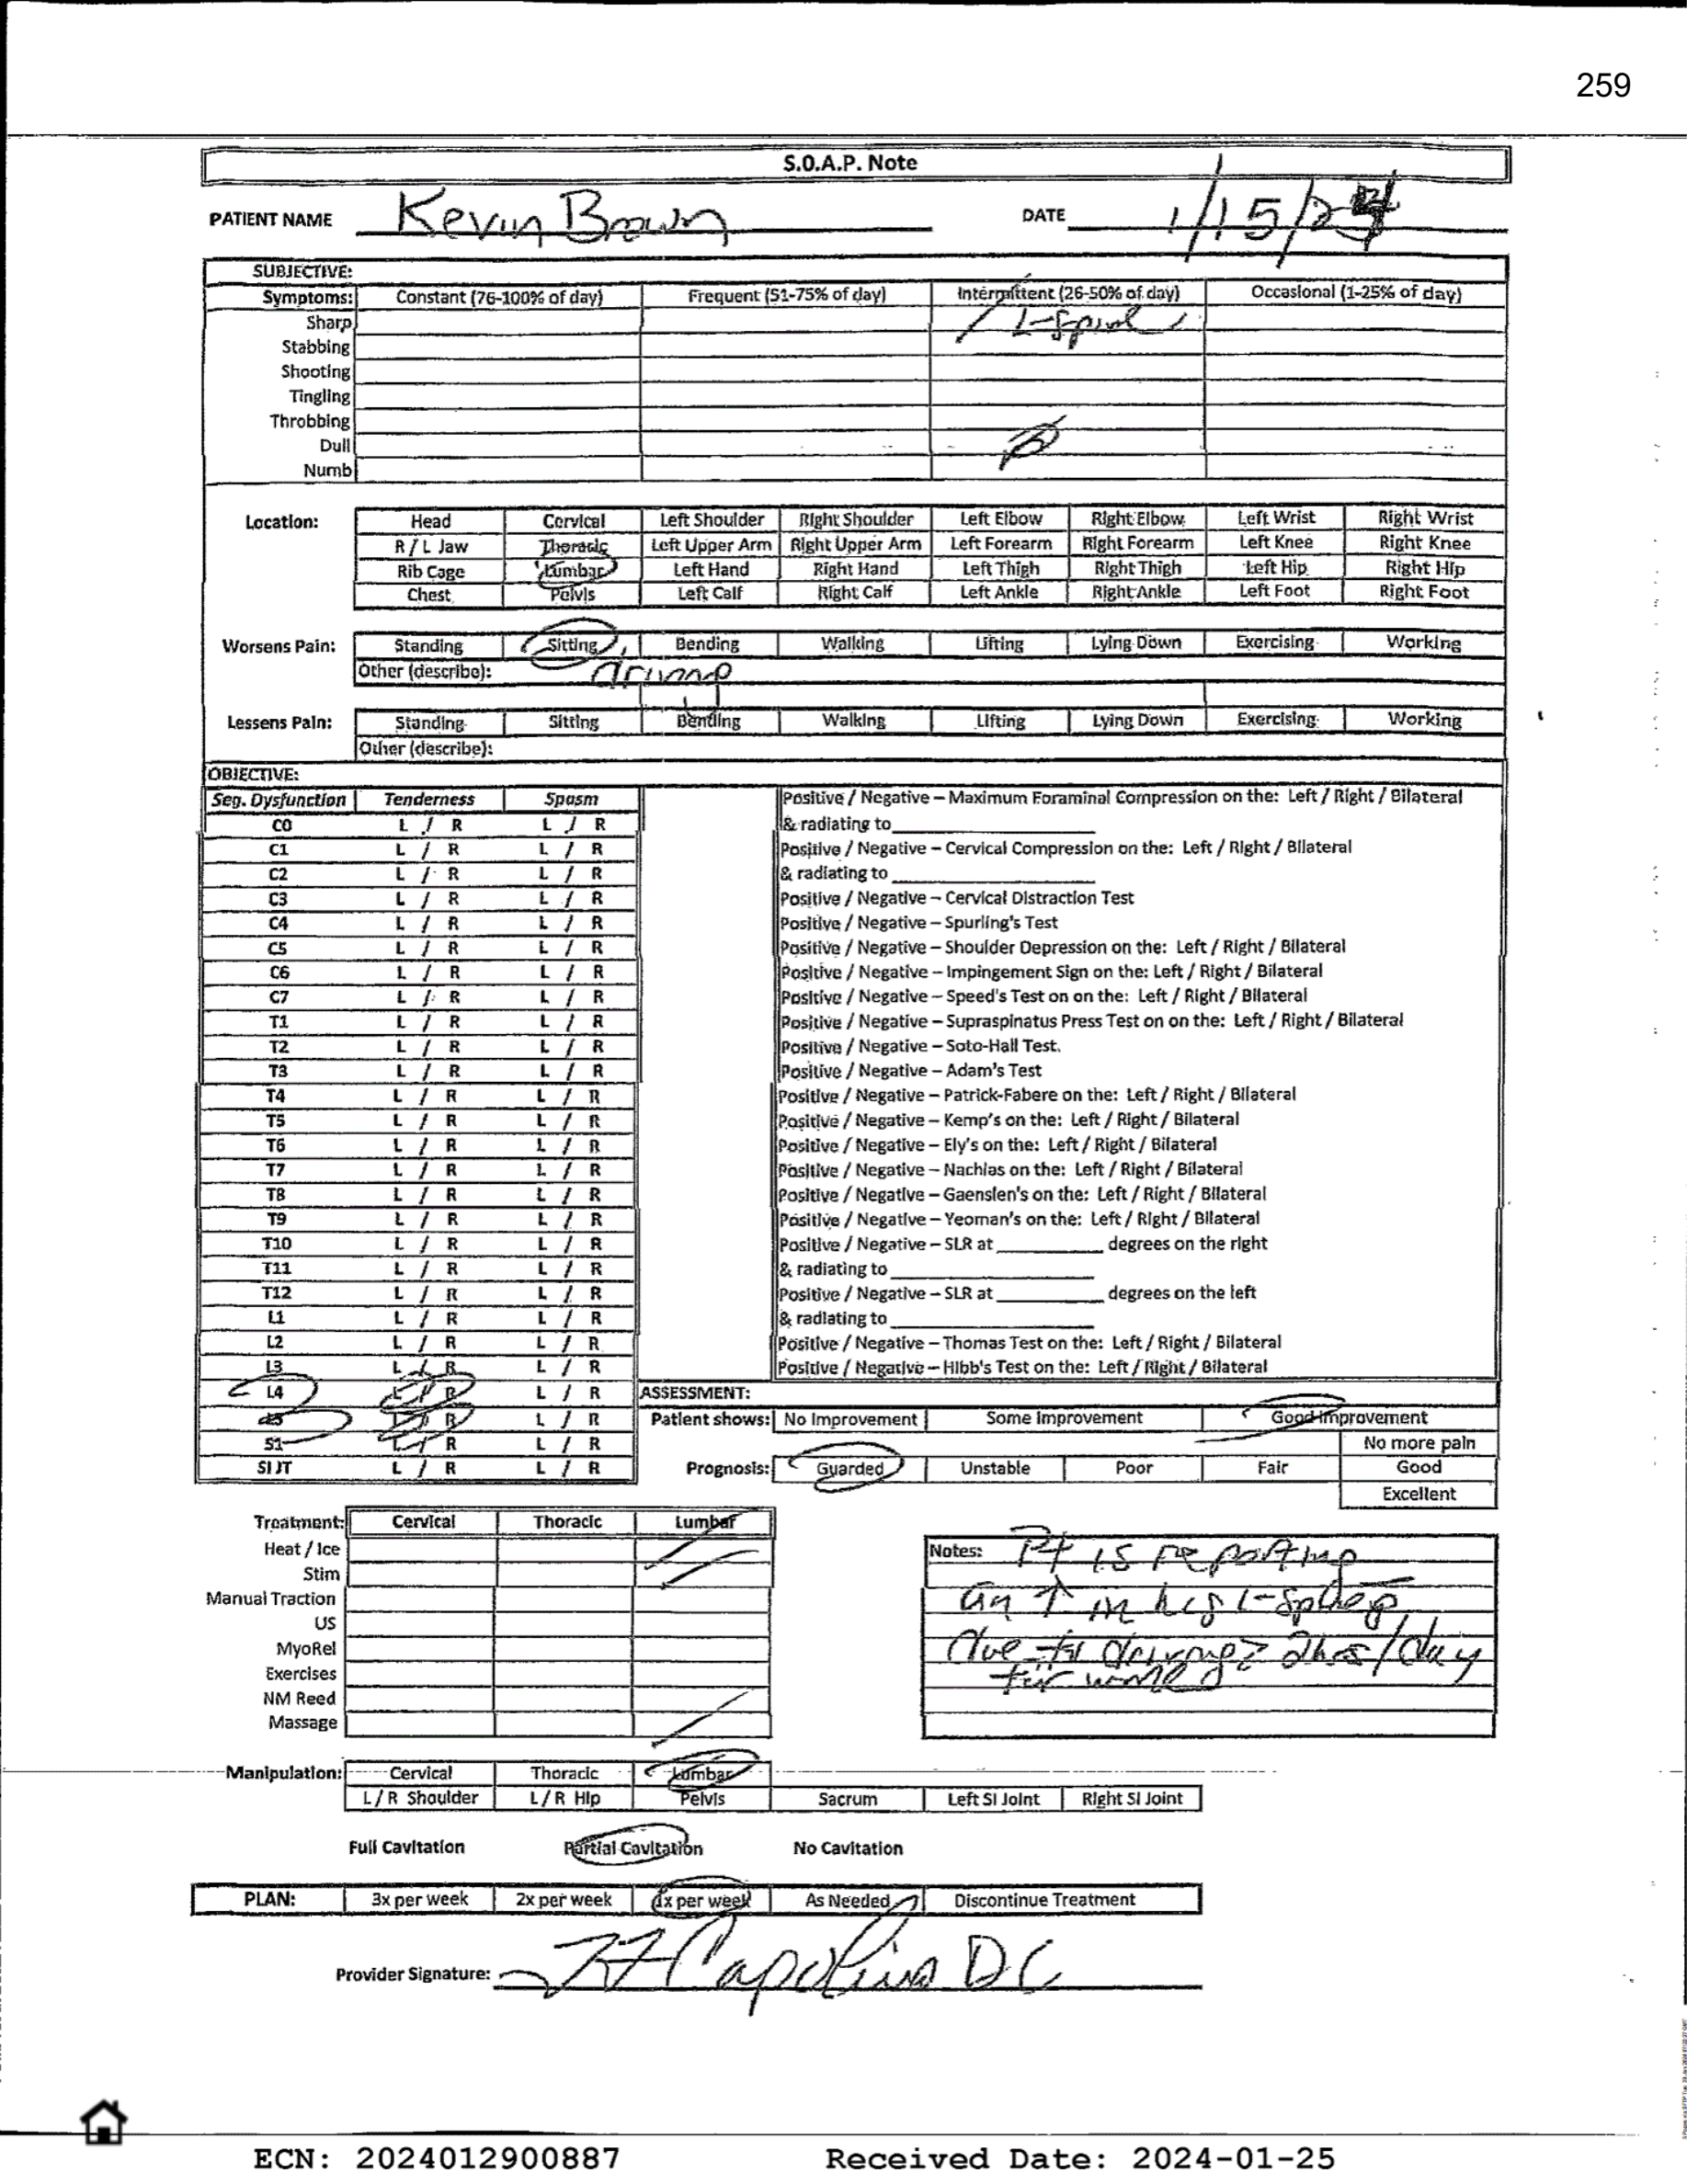 259
S.O.A.P. Note
PATIENT NAME Kevin Brown DATE 1/15/24
SUBJECTIVE:
Symptoms: Constant (76-100% of day) Frequent (51-75% of day) Intermittent (26-50% of day) Occasional (1-25% of day)
Sharp L-spine
Stabbing
Shooting
Tingling
Throbbing
Dull
Numb
Location: Head Cervical Left Shoulder Right Shoulder Left Elbow Right Elbow Left Wrist Right Wrist
R / L Jaw Thoracic Left Upper Arm Right Upper Arm Left Forearm Right Forearm Left Knee Right Knee
Rib Cage Lumbar Left Hand Right Hand Left Thigh Right Thigh Left Hip Right Hip
Chest Pelvis Left Calf Right Calf Left Ankle Right Ankle Left Foot Right Foot
Worsens Pain: Standing Sitting Bending Walking Lifting Lying Down Exercising Working
Other (describe): driving
Lessens Pain: Standing Sitting Bending Walking Lifting Lying Down Exercising Working
Other (describe):
OBJECTIVE:
Seg. Dysfunction Tenderness Spasm Positive / Negative – Maximum Foraminal Compression on the: Left / Right / Bilateral
C0 L / R L / R & radiating to
C1 L / R L / R Positive / Negative – Cervical Compression on the: Left / Right / Bilateral
C2 L / R L / R & radiating to
C3 L / R L / R Positive / Negative – Cervical Distraction Test
C4 L / R L / R Positive / Negative – Spurling's Test
C5 L / R L / R Positive / Negative – Shoulder Depression on the: Left / Right / Bilateral
C6 L / R L / R Positive / Negative – Impingement Sign on the: Left / Right / Bilateral
C7 L / R L / R Positive / Negative – Speed's Test on on the: Left / Right / Bilateral
T1 L / R L / R Positive / Negative – Supraspinatus Press Test on on the: Left / Right / Bilateral
T2 L / R L / R Positive / Negative – Soto-Hall Test.
T3 L / R L / R Positive / Negative – Adam's Test
T4 L / R L / R Positive / Negative – Patrick-Fabere on the: Left / Right / Bilateral
T5 L / R L / R Positive / Negative – Kemp's on the: Left / Right / Bilateral
T6 L / R L / R Positive / Negative – Ely's on the: Left / Right / Bilateral
T7 L / R L / R Positive / Negative – Nachlas on the: Left / Right / Bilateral
T8 L / R L / R Positive / Negative – Gaenslen's on the: Left / Right / Bilateral
T9 L / R L / R Positive / Negative – Yeoman's on the: Left / Right / Bilateral
T10 L / R L / R Positive / Negative – SLR at degrees on the right
T11 L / R L / R & radiating to
T12 L / R L / R Positive / Negative – SLR at degrees on the left
L1 L / R L / R & radiating to
L2 L / R L / R Positive / Negative – Thomas Test on the: Left / Right / Bilateral
L3 L / R L / R Positive / Negative – Hibb's Test on the: Left / Right / Bilateral
L4 L / R L / R ASSESSMENT:
L5 L / R L / R Patient shows: No Improvement Some Improvement Good Improvement
S1 L / R L / R No more pain
SI JT L / R L / R Prognosis: Guarded Unstable Poor Fair Good
Excellent
Treatment: Cervical Thoracic Lumbar
Heat / Ice Notes: Pt is reporting
Stim
Manual Traction an ↑ in his L-sp
US
MyoRel due to driving > 2hrs/day
Exercises for work
NM Reed
Massage
Manipulation: Cervical Thoracic Lumbar
L / R Shoulder L / R Hip Pelvis Sacrum Left SI Joint Right SI Joint
Full Cavitation Partial Cavitation No Cavitation
PLAN: 3x per week 2x per week 1x per week As Needed Discontinue Treatment
Provider Signature: DC
ECN: 2024012900887 Received Date: 2024-01-25